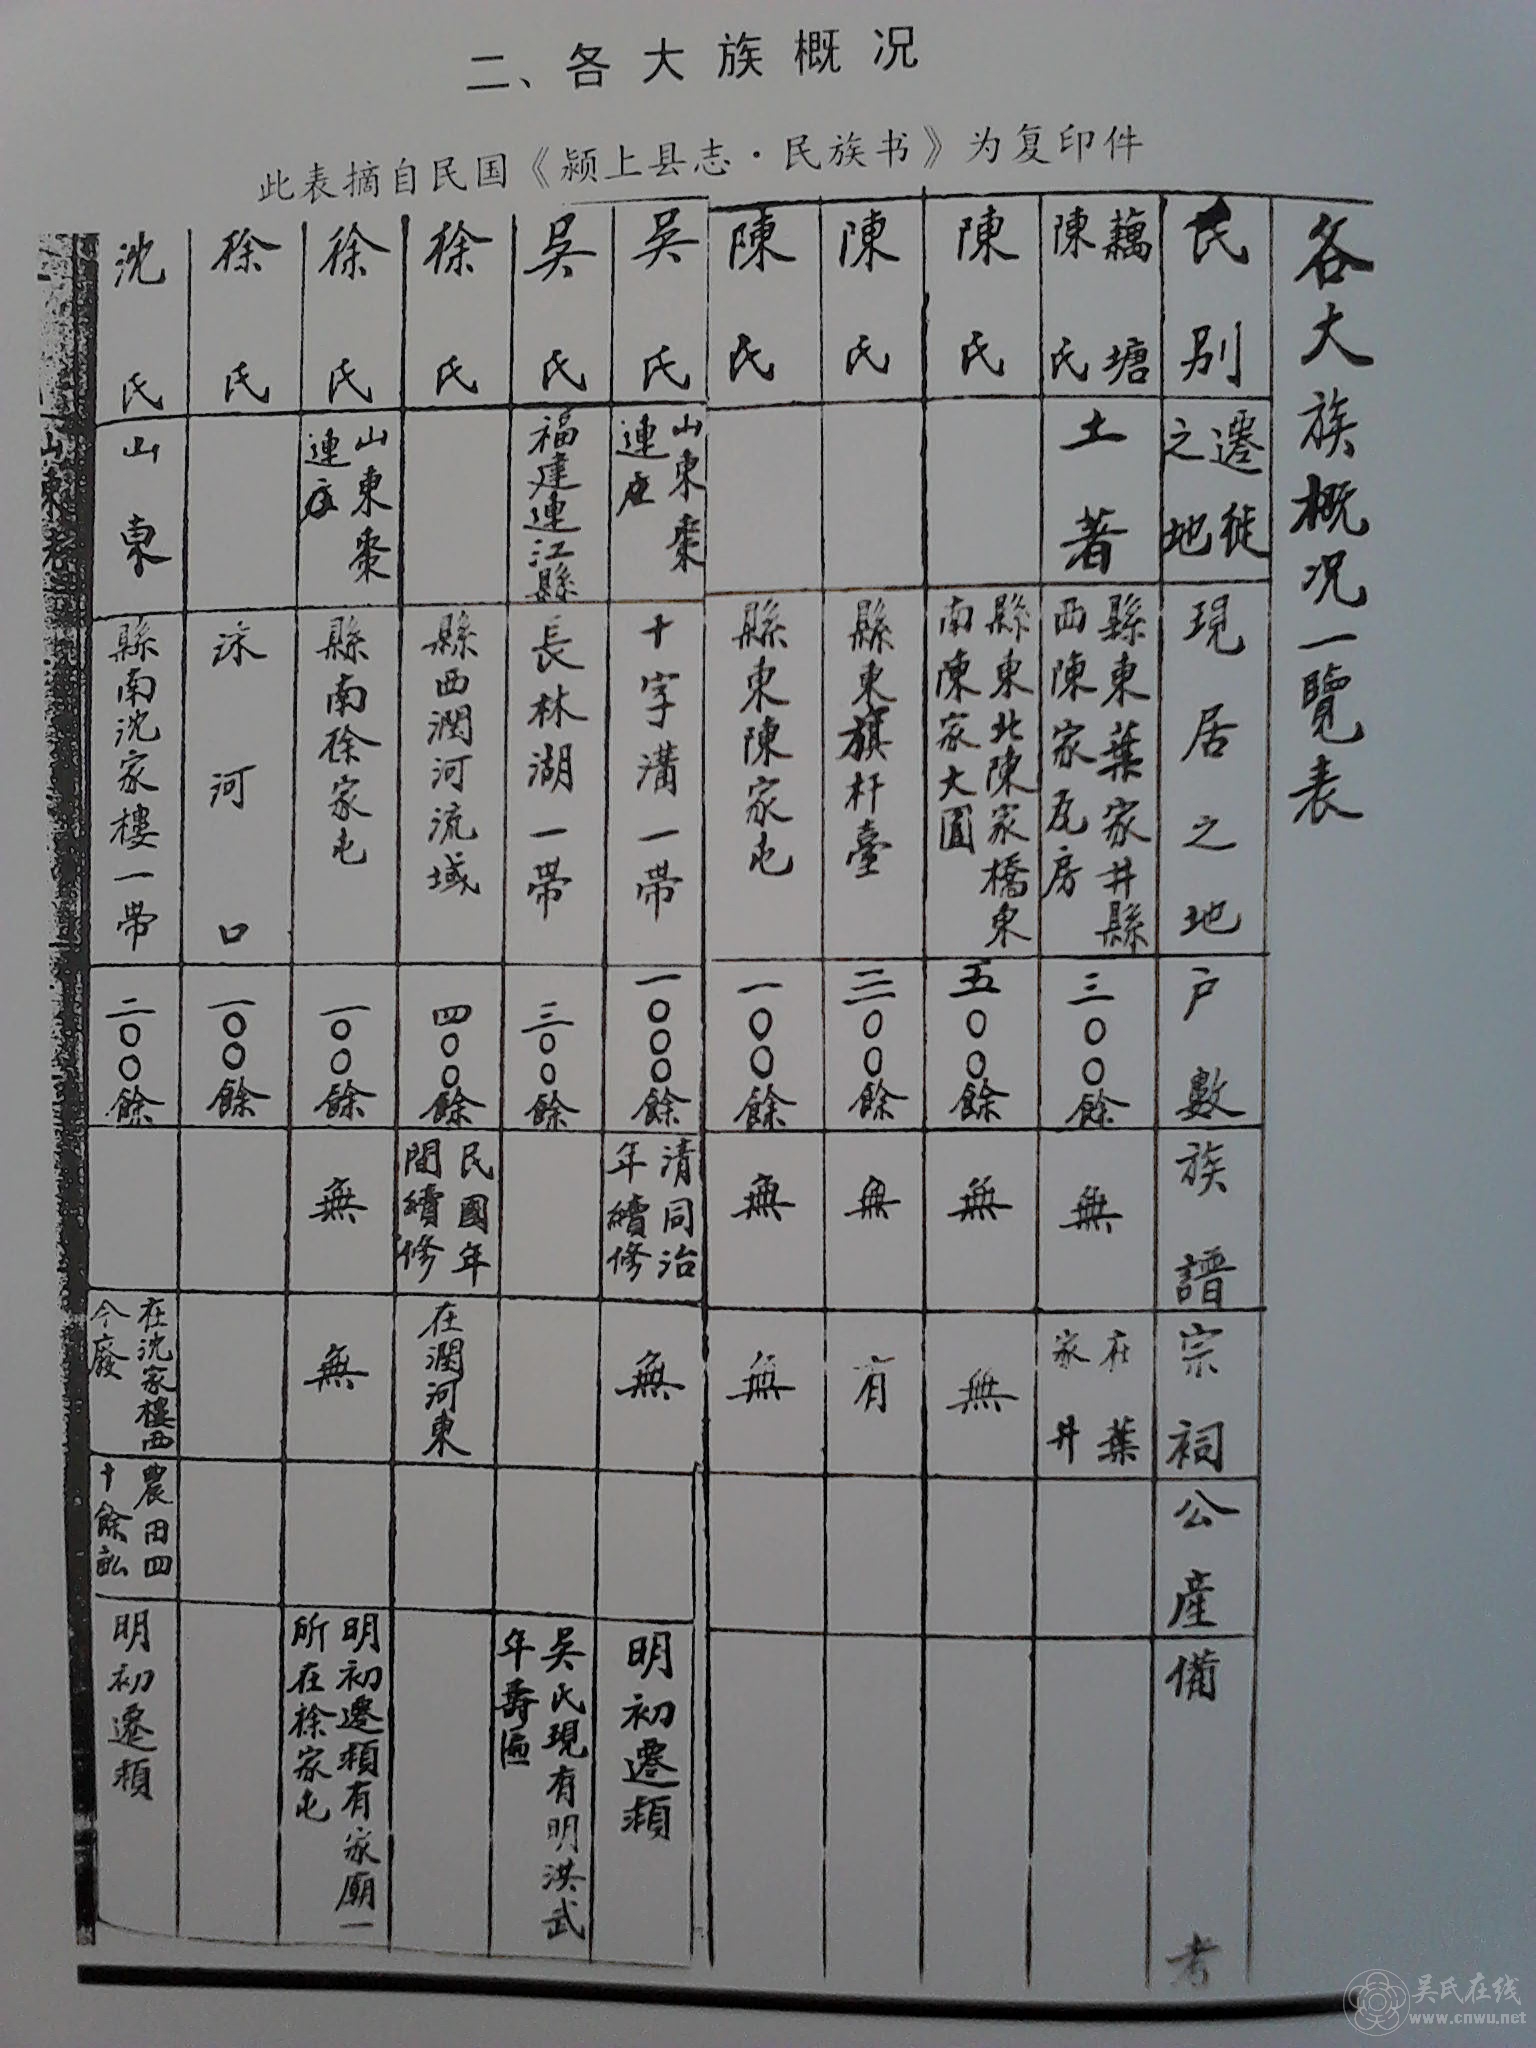 二、各大族概况
此表摘自民国《颍上县志·民族书》为复印件
各大族概况一覽表
氏别
遷徙之地
現居之地
户數
族譜
宗祠
公產
備考
藕塘陳氏
土著
縣東葉家井縣西陳家瓦房
三〇〇餘
無
在葉家井
陳氏
縣東北陳家橋東南陳家大圓
五〇〇餘
無
無
陳氏
縣東旗杆臺
三〇〇餘
無
有
陳氏
縣東陳家屯
一〇〇餘
無
無
吳氏
山東棗連庄
十字溝一帶
一〇〇〇餘
清同治年續修
無
明初遷頴
吳氏
福建連江縣
長林湖一帶
三〇〇餘
吳氏現有明洪武年壽匾
徐氏
縣西潤河流域
四〇〇餘
民國年間續修
在潤河東
徐氏
山東棗連庄
縣南徐家屯
一〇〇餘
無
無
明初遷頴有家廟一所在徐家屯
徐氏
河口
一〇〇餘
沈氏
山東
縣南沈家樓一帶
二〇〇餘
在沈家樓西今廢
農田四十餘畝
明初遷頴
山東棗
吴氏在线
www.cnwu.net